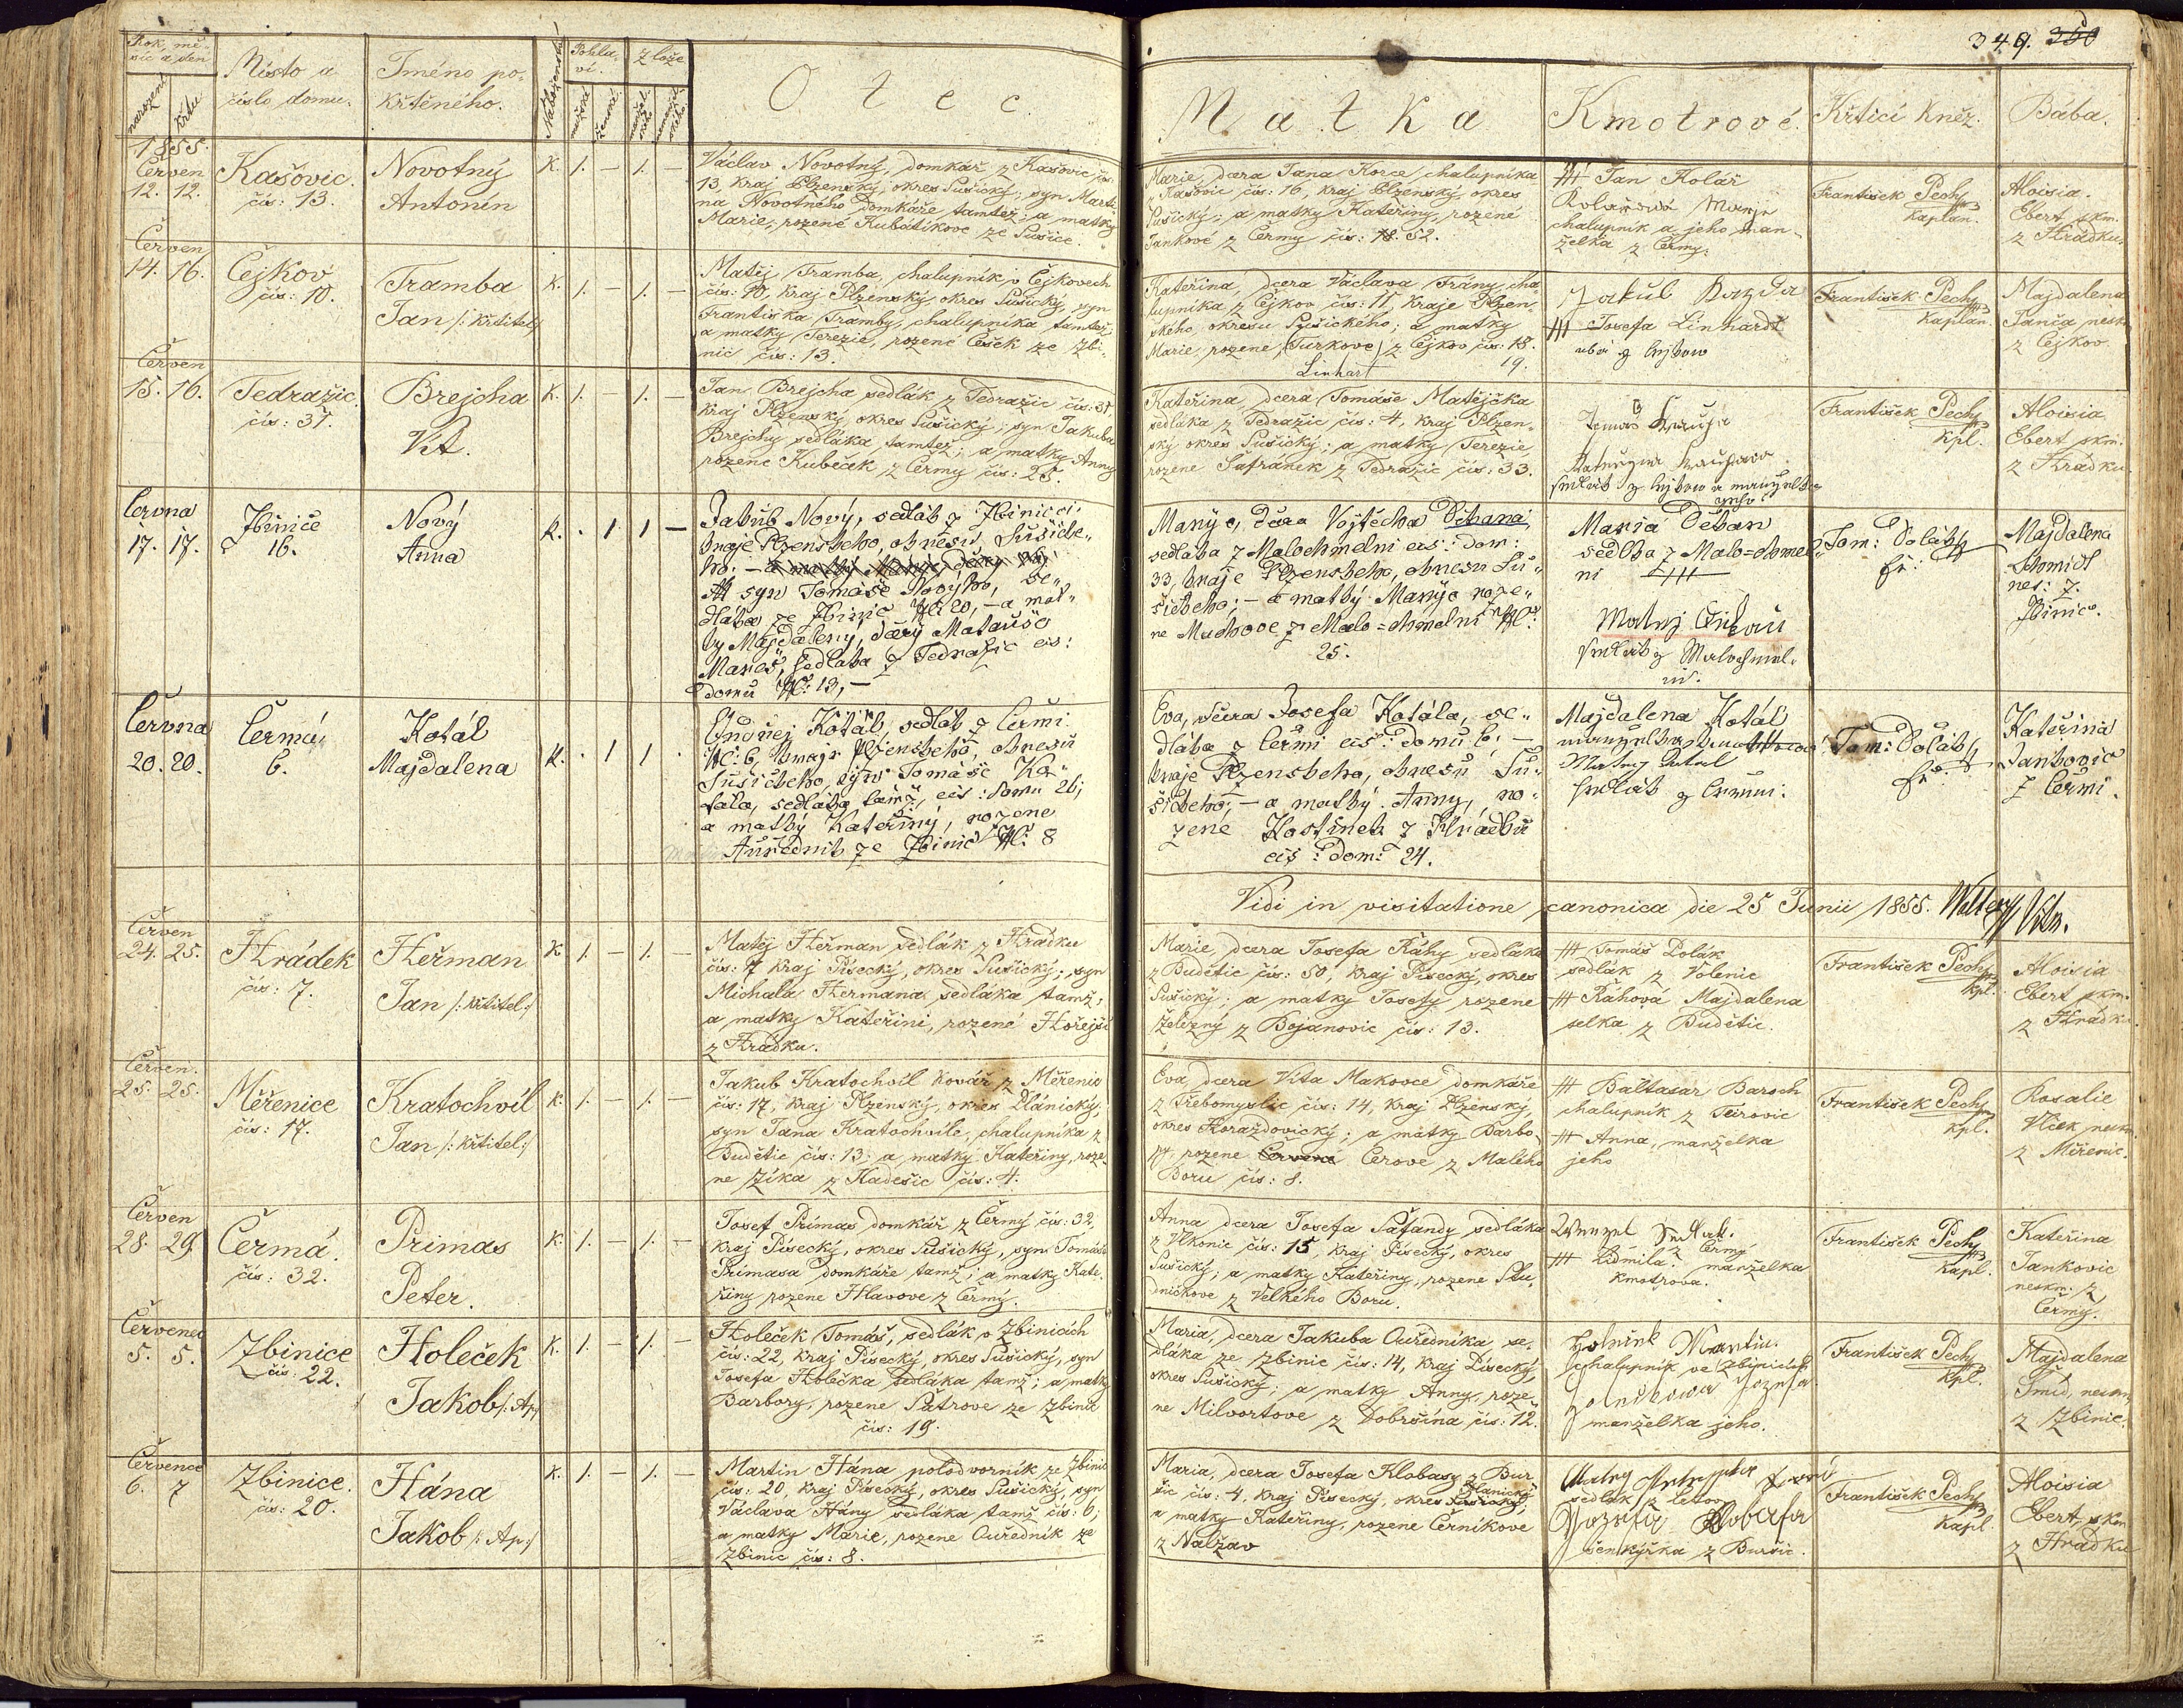 349. 350
Rok, mě-
síc a den
narození
křtu
Místo a
číslo domu.
Jméno po-
křtěného.
Náboženství
Pohla-
ví.
mužské
ženské
Z lože
manžel-
ského
nemanžel-
ského
Otec
Matka
Kmotrové.
Křtící kněz.
Bába.
1855.
Červen
12. 12.
Kašovic.
čís: 13.
Novotný
Antonín
K. 1. — 1. —
Václav Novotný, domkář z Kašovic čís:
13, kraj Plzenský, okres Sušický, syn Marti-
na Novotného domkáře tamtéž; a matky
Marie, rozené Kubátikove ze Sušice.
Marie, dcera Jana Korce chalupníka
z Kašovic čís: 16, kraj Plzenský, okres
Sušický; a matky Kateřiny, rozené
Jankové z Čermy čís: 18. 52.
+++ Jan Kolář
Kolařowá Marye
chalupník a jeho man-
želka z Čermy.
František Pech
Kaplan.
Aloisia
Ebert, skm.
z Hrádku.
Červen
14. 16.
Čejkov
čís: 10.
Tramba
Jan /: křtitel :/
K. 1. — 1. —
Matěj Tramba, chalupník v Čejkovech
čís: 10, kraj Plzenský, okres Sušický, syn
Františka Tramby, chalupníka tamtéž;
a matky Terezie, rozené Češek ze Zbi-
nic čís: 13.
Kateřina, dcera Václava Trány, cha-
lupníka z Čejkov čís: 11, kraje Plzen-
ského, okresu Sušického; a matky
Marie, rozene, Turkove z Čejkov čís: 18.
Linhart 19.
Jakub Kazda
+++ Josefa Linhardt
František Pech
Kaplan.
Majdalena
Tanča neskm.
z Čejkov.
Červen
15. 16.
Tedražic.
čís: 37.
Brejcha
Vít.
K. 1. — 1. —
Jan Brejcha sedlák z Tedražic čís: 37
Kraj Plzenský, okres Sušický; syn Jakuba
Brejchy sedláka tamtéž; a matky Anny
rozene Kubeček z Čermy čís: 25.
Kateřina, dcera Tomáše Matějčka
sedláka z Tedražic čís: 4, kraj Plzen-
ský okres Sušický; a matky Terezie,
rozene Šafránek z Tedražic čís: 33.
František Pech
Kpl.
Aloisia
Ebert skm.
z Hrádku.
Června
17. 17.
Zbinice
16.
Nový
Anna
K. . 1 1 —
Jakub Nový, sedlák z Zbinic
kraje Plzenskeho, okresu Sušicke-
ho: — a matky Marye dcery
syn Tomáše Novýho, se-
dláka ze Zbinic Nč: 20, — a mat-
ky Majdaleny, dcery Matouše
Mareš, sedlaka z Tedražic čis:
domu Nč: 13, —
Marye, dcera Vojtěcha Děkana
sedlaka z Malochmelni čis: dom:
33, kraje Plzenskeho, okresu Su-
šickeho: — a matky Marye roze-
ne Muchove z Malo=chmelni Nč:
25.
Maria Děkan
sedlka z Malo=chmel-
ni +++
Matěj Děkan
sedlák z Malochmel-
ni.
Tom: Dolák
fr:
Majdalena
Schmidt
nes: z.
Zbinic.
Června
20. 20.
Čermá
6.
Kotál
Majdalena
K. . 1 1 .
Ondřej Kotál, sedlák z Čermi
Nč: 6, kraje Plzenskeho, okresu
Sušickeho, syn Tomáše Ko-
tála, sedláka tamž, čis: domu 26;
a matky Kateřiny, rozene
Auřednik ze Zbinic Nč: 8
Eva, dcera Josefa Kotála, se-
dláka z Čermi čis: domu 6. —
kraje Plzenskeho, okresu Su-
šickeho; — a matky Anny, ro-
zené Kostinek z Hrádku
čis: dom: 24.
Majdalena Kotál
Matej Kotal
sedlák z Čermi.
Tom: Dolák
fr:
Kateřina
Jankovic
z Čermi.
Vidi in visitatione canonica die 25 Junii 1855.
Červen
24. 25.
Hrádek
čís: 7.
Heřman
Jan /: křtitel :/
K 1. — 1. —
Matěj Heřman sedlák z Hrádku
čís: 7 kraj Písecký, okres Sušický; syn
Michala Heřmana sedláka tamž;
a matky Kateřini, rozené Hořejší
z Hrádku.
Marie, dcera Josefa Ráhy sedláka
z Budětic čís: 50, kraj Písecký, okres
Sušický; a matky Josefy rozene
Železný z Bojanovic čís: 13.
+++ Tomáš Polák
sedlák z Volenic
+++ Ráhová Majdalena
selka z Budětic.
František Pech
kpl.
Aloisia
Ebert skm.
z Hrádku.
Červen.
25. 25.
Měřenice
čís: 17.
Kratochvíl
Jan /: křtitel :/
K. 1. — 1. —
Jakub Kratochvíl kovář z Měřenic
čís: 17, kraj Plzenský, okres Plánický;
syn Jana Kratochvíle, chalupníka z
Budětic čís: 13; a matky Kateřiny, roze-
ne Zíka z Kadešic čís: 4.
Eva, dcera Víta Makovce domkáře
z Třebomyslic čís: 14, kraj Plzenský,
okres Horažďovický; a matky Barbo-
ry rozene Červené Cerove z Malého
Boru čís: 8.
+++ Baltasar Baroch
chalupník z Tčirovic
+++ Anna, manželka
jeho
František Pech
kpl.
Rosalie
Vlček neskm.
z Měřenic.
Červen
28. 29.
Čermá.
čís: 32.
Primas
Peter.
K. 1. — 1. —
Josef Primas domkář z Čermy čís: 32,
Kraj Písecký, okres Sušický, syn Tomáše
Primasa domkáře tamž; a matky Kate-
řiny rozene Hlavove z Čermy.
Anna dcera Josefa Šafandy sedláka
z Vlkonic čís: 15, kraj Písecký, okres
Sušický; a matky Kateřiny, rozene Stu-
dničkove z Velkého Boru.
Wenzel Sedlak.
z Čermý
+++ Lidmila manželka
Kmotrova.
František Pech
Kapl.
Kateřina
Jankovic
neskm: z
Čermy.
Července
5. 5.
Zbinice
čís: 22.
Holeček
Jakob /: Ap :/
K. 1. — 1. —
Holeček Tomáš, sedlák v Zbinicích
čís: 22, kraj Písecký, okres Sušický, syn
Josefa Holečka sedláka tamž; a matky
Barbory, rozene Šatrove ze Zbinic
čís: 19.
Maria, dcera Jakuba Ouředníka, se-
dláka ze Zbinic čís: 14, kraj Písecký,
okres Sušický; a matky Anny, roze-
ne Milvortove z Dobršína čís: 12.
chalupník ve Zbinicích
manželka jeho.
František Pech
Kpl.
Majdalena
Šmíd, neskm.
z Zbinic.
Července
6. 7
Zbinice.
čís: 20.
Hána
Jakob /: Ap :/
K. 1. — 1. —
Martin Hána polodvorník ze Zbinic
čís: 20, kraj Písecký, okres Sušický, syn
Václava Hány sedláka tamž čís: 6;
a matky Marie, rozene Ouředník ze
Zbinic čís: 8.
Maria, dcera Josefa Klobasy z Bur-
šic čís: 4, kraj Písecký, okres Sušický, Planický
a matky Kateřiny, rozene Černíkove
z Nalžav
sedlák z Letov
Jozefa Klobasa
šenkýřka z Buršic.
František Pech
Kapl.
Aloisia
Ebert, skm
z Hrádku